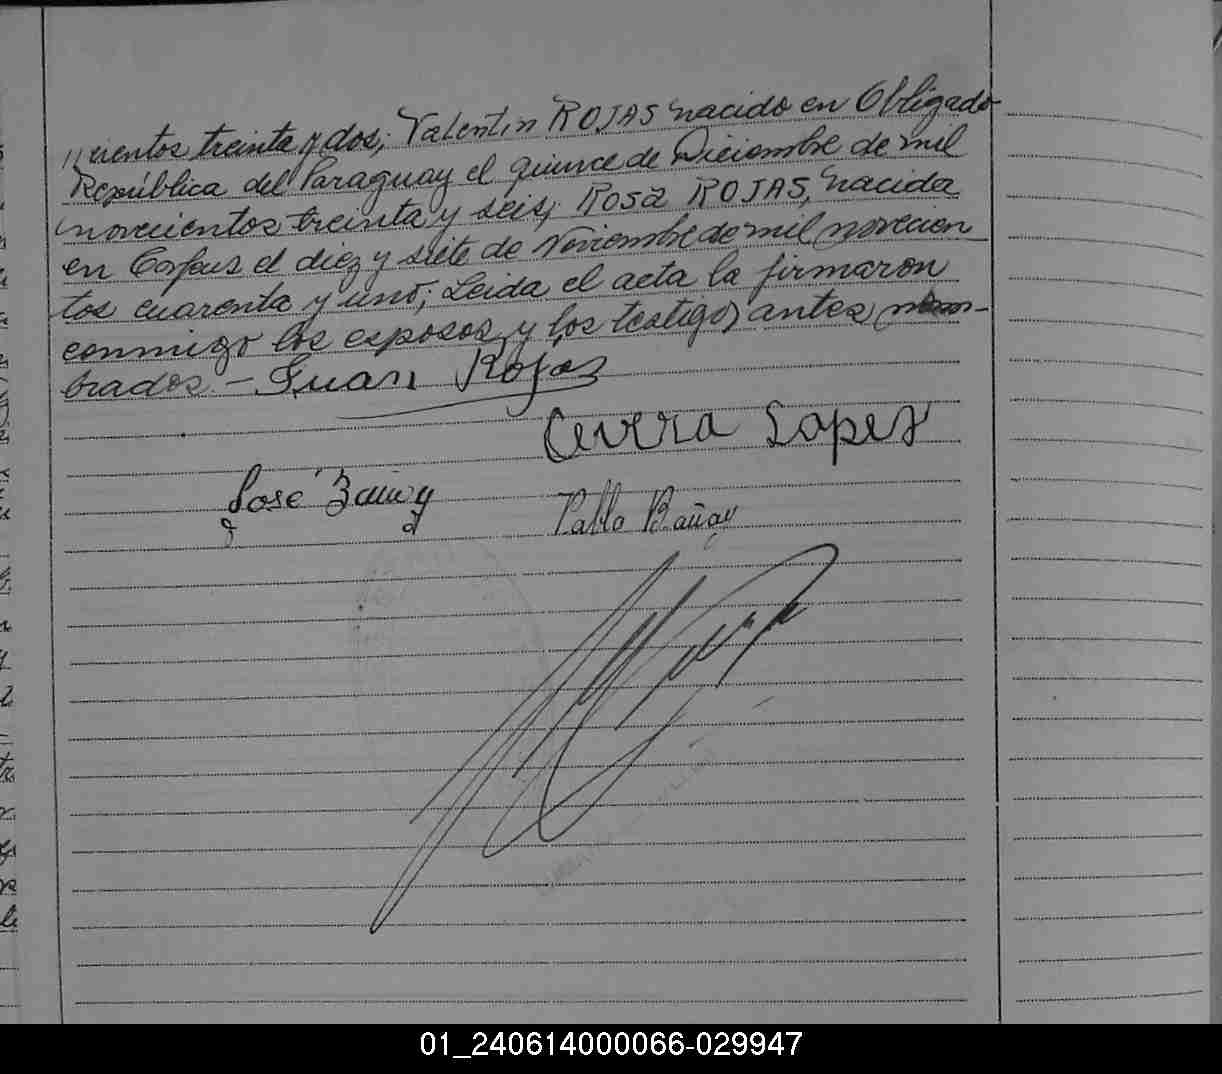 //cientos treinta y dos; Valentin ROJAS nacido en Obligado
República del Paraguay el quince de Diciembre de mil
novecientos treinta y seis; Rosa ROJAS, nacida
en Corpus el diez y siete de Noviembre de mil novecien
tos cuarenta y uno; Leida el acta la firmaron
conmigo los esposos y los testigos antes nom-
brados.- Juan Rojas
Lopez
José
Pablo
01_240614000066-029947